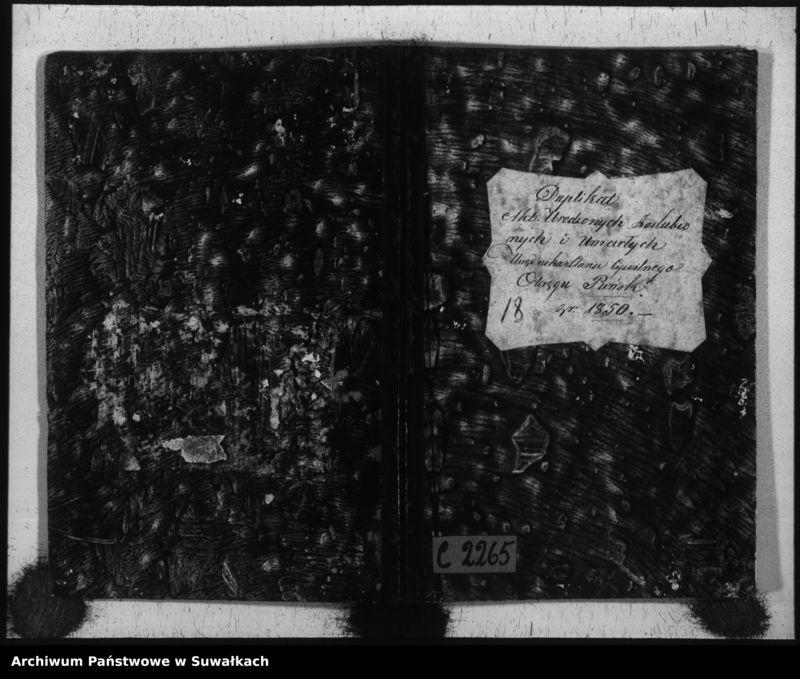 Duplikat
Akt. Urodzonych Zaślubio
nych i Umarłych
Urzędnika Stanu Cywilnego
Okręgu Puńsk.
18 zr. 1850.—
C 2265
Archiwum Państwowe w Suwałkach